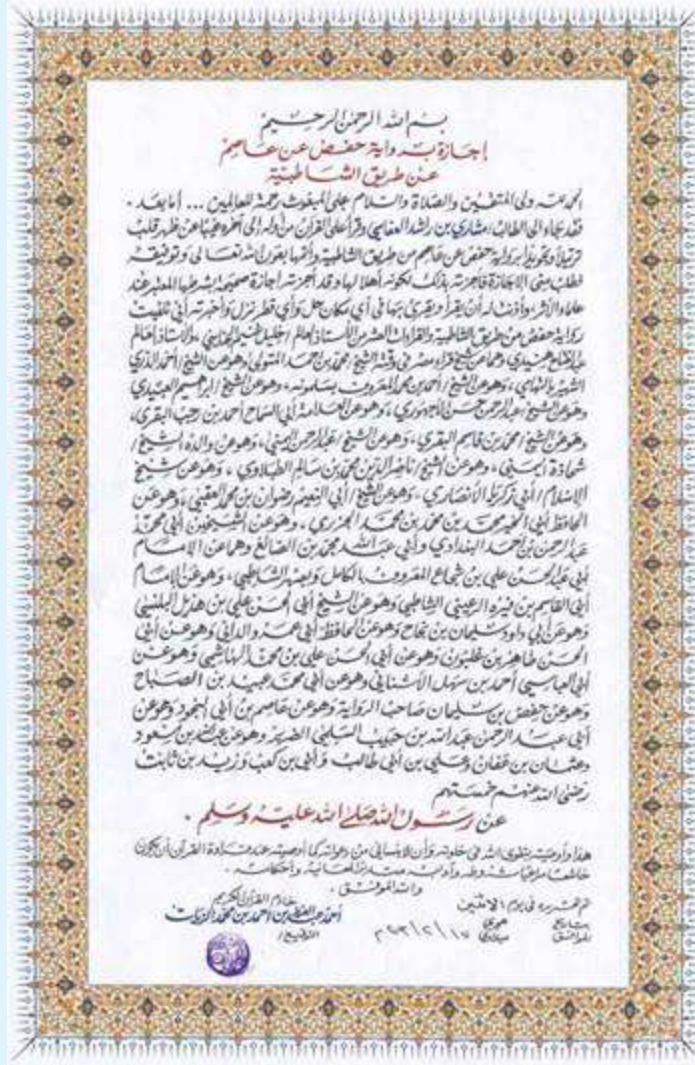 بسم الله الرحمن الرحيم
إجازة برواية حفص عن عاصم
عن طريق الشاطبية
الحمد لله ولي المتقين والصلاة والسلام على المبعوث رحمة للعالمين ... أما بعد .
فقد جاء إلي الطالب / مشاري بن راشد العفاسي وقرأ علي القرآن من أوله إلى آخره غيبا عن ظهر قلب
ترتيلا وتجويدا برواية حفص عن عاصم من طريق الشاطبية وأتمها بعون الله تعالى وتوفيقه
فطلب مني الإجازة فأجزته بذلك لكونه أهلا لها وقد أجزته إجازة صحيحة بشرطها المعتبر عند
علماء الأثر وأذنت له أن يقرأ ويقرئ بها في أي مكان حل وأي قطر نزل وأخبرته أني تلقيت
رواية حفص من طريق الشاطبية والقراءات العشر من الأستاذ العالم / خليل غنيم الجنايني ، والأستاذ العالم
عبد الفتاح هنيدي وهما عن شيخ قراء مصر في وقته الشيخ / محمد بن أحمد المتولي وهو عن الشيخ / أحمد الدري
الشهير بالتهامي ، وهو عن الشيخ / أحمد بن محمد المعروف بسلمونه ، وهو عن الشيخ / إبراهيم العبيدي
وهو عن الشيخ / عبد الرحمن بن حسن الأجهوري ، وهو عن العلامة أبي السماح أحمد بن رجب البقري ،
وهو عن الشيخ / محمد بن قاسم البقري ، وهو عن الشيخ / عبد الرحمن اليمني ، وهو عن والده الشيخ /
شحاذة اليمني ، وهو عن الشيخ / ناصر الدين محمد بن سالم الطبلاوي ، وهو عن شيخ
الإسلام / أبي زكريا الأنصاري ، وهو عن الشيخ / أبي النعيم رضوان بن محمد العقبي ، وهو عن
الحافظ أبي الخير محمد بن محمد بن محمد الجزري ، وهو عن الشيخين أبي محمد
عبد الرحمن بن أحمد البغدادي وأبي عبد الله محمد بن الصائغ وهما عن الإمام
أبي عبد الحسن علي بن شجاع المعروف بالكامل وبصهر الشاطبي ، وهو عن الإمام
أبي القاسم بن فيره الرعيني الشاطبي وهو عن الشيخ أبي الحسن علي بن هذيل البلنسي
وهو عن أبي داود سليمان بن نجاح وهو عن الحافظ أبي عمرو الداني وهو عن أبي
الحسن طاهر بن غلبون وهو عن أبي الحسن علي بن محمد الهاشمي وهو عن
أبي العباس أحمد بن سهل الأشناني وهو عن أبي محمد عبيد بن الصباح
وهو عن حفص بن سليمان صاحب الرواية وهو عن عاصم بن أبي النجود وهو عن
أبي عبد الرحمن عبد الله بن حبيب السلمي الضرير وهو عن عبد الله بن مسعود
وعثمان بن عفان وعلي بن أبي طالب وأبي بن كعب وزيد بن ثابت
رضي الله عنهم خمستهم
عن رسول الله صلى الله عليه وسلم .
هذا وأوصيه بتقوى الله في خلوته وأن لا ينساني من دعواته كما أوصيه عند قراءة القرآن أن يكون
خاشعا مراعيا شروطه وآدابه متدبرا لمعانيه وأحكامه .
والله الموفق .
تم تحريره في يوم الاثنين
بتاريخ هجري
الموافق ميلادي ١٧/٢/٩٢ م
خادم القرآن الكريم
أحمد عبد العزيز بن أحمد بن محمد الزيات
التوقيع /